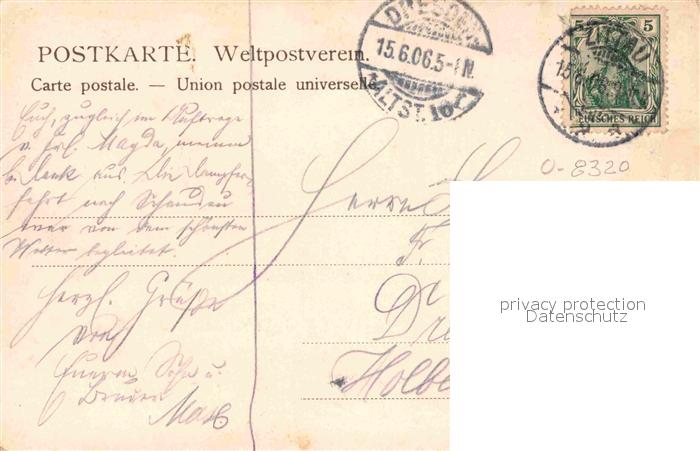 POSTKARTE. Weltpostverein.
Carte postale. — Union postale universelle.
DRESDEN
15.6.06.5-6N.
ALTST. 16
ZITTAU
15.6.06
5 5
DEUTSCHES REICH
0-8320
Euch, zugleich im Auftrage
v. Frl. Magda, meinen
Dank aus. Die Dampfer-
fahrt nach Schandau
war von dem schönsten
Wetter begleitet.
Herzl. Grüße
von
Euerm Sohn u.
Bruder
Max
Herrn
Fr.
Dre
Holbe
privacy protection
Datenschutz